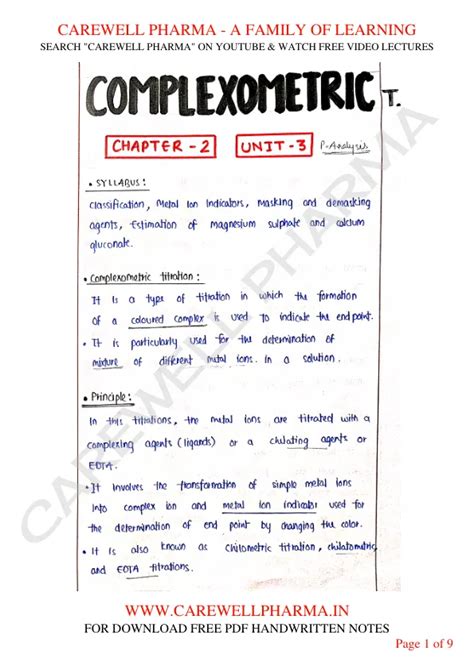 CAREWELL PHARMA - A FAMILY OF LEARNING
SEARCH "CAREWELL PHARMA" ON YOUTUBE & WATCH FREE VIDEO LECTURES
COMPLEXOMETRIC T.
CHAPTER - 2 UNIT - 3 P-Analysis
• SYLLABUS :
Classification, Metal Ion Indicators, Masking and demasking
agents, Estimation of magnesium sulphate and calcium
gluconate.
• Complexometric titration :
It is a type of titration in which the formation
of a coloured complex is used to indicate the end point.
• It is particularly used for the determination of
mixture of different metal ions. In a solution.
• Principle :
In this titrations, the metal ions are titrated with a
complexing agents (ligands) or a chilating agents or
EDTA.
• It involves the transformation of simple metal ions
into complex ion and metal ion indicator used for
the determination of end point by changing the color.
• It is also known as chilometric titration, chilatometric
and EDTA titrations.
CAREWELL PHARMA
WWW.CAREWELLPHARMA.IN
FOR DOWNLOAD FREE PDF HANDWRITTEN NOTES
Page 1 of 9